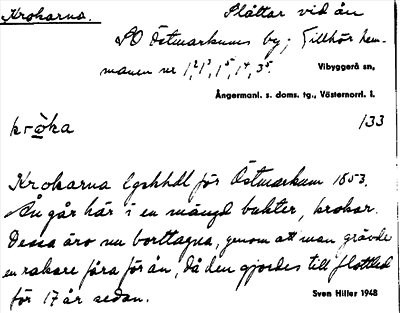 Krokarna. Slåttar vid ån
SO Östmarkums by; Tillhör hem-
manen nr 1², 1³, 1⁵, 1⁴, 3⁵. Vibyggerå sn,
Ångermanl. s. doms. tg., Västernorrl. l.
kròka 133
Krokarna lgskhdl för Östmarkum 1853.
Ån går här i en mängd bukter, krokar.
Dessa äro nu borttagna, genom att man grävde
en rakare fåra för ån, då den gjordes till flottled
för 17 år sedan. Sven Hiller 1948